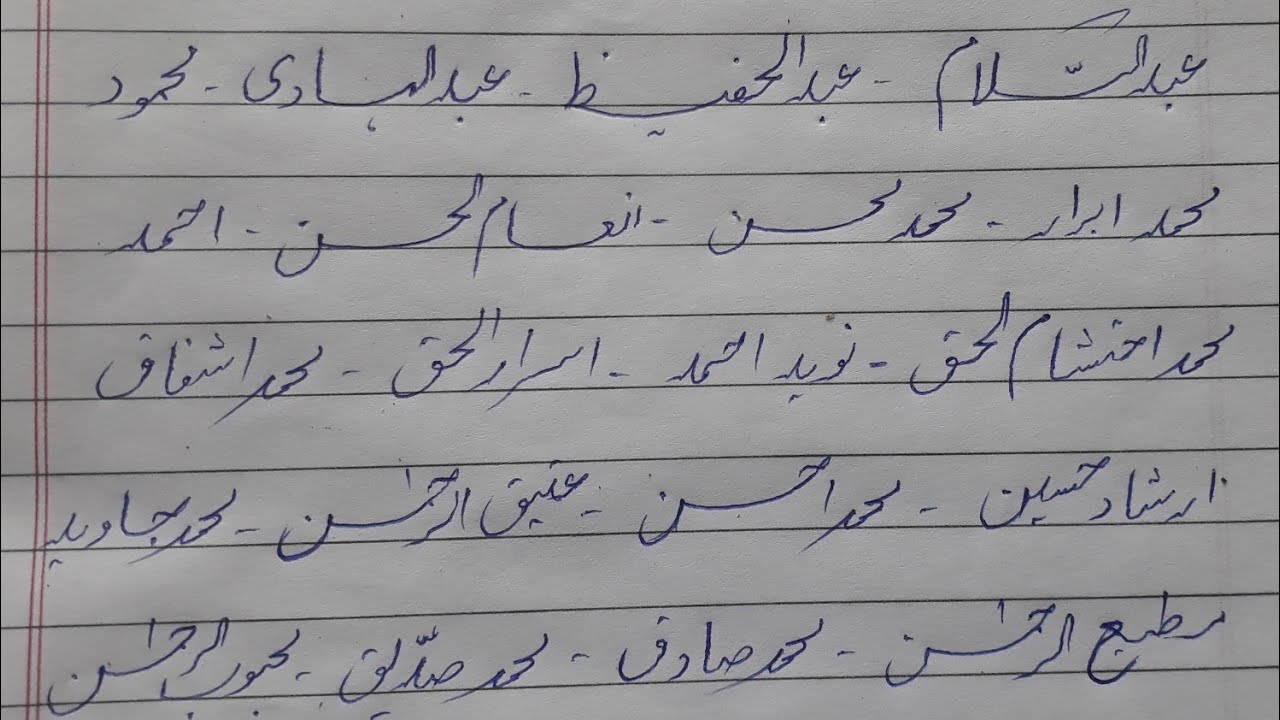 عبدالسّلام - عبدالحفیظ - عبدالہادی - محمود
محمد ابرار - محمد محسن - انعام الحسن - احمد
محمد احتشام الحق - نوید احمد - اسرار الحق - محمد اشفاق
ارشاد حسین - محمد احسن - عتیق الرحمٰن - محمد جاوید
مطیع الرحمٰن - محمد صادق - محمد صدّیق - محبوب الرحمٰن